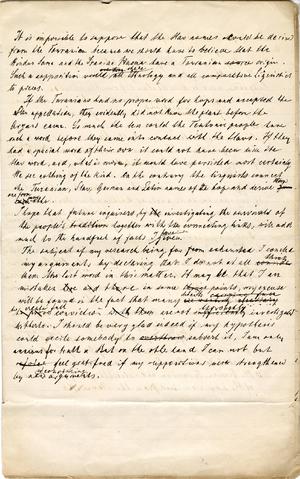 It is impossible to suppose that the Slav names could be derived
from the Turanian because we should have to believe that the
Hindu Soma and the Iranian Haoma have a Turanian source origin.
Such a supposition would all ethnology and all comparative linguistics
to pieces.
If the Turanians had no proper word for hops and accepted the
Slav appellation, they evidently did not know the plant before the
Aryans came. So much the less could the Teutonic people have
had a word before they came into contact with the Slavs. If they
had a special word of their own it could not have been like the
Slav word, and, what is more, it would have persisted most certainly.
We see nothing of the kind. On the contrary the linguists connect
the Turanian, Slav, German and Latin names of the hop and derive them
one from
each other.
I hope that future enquirers, by investigating the survivals of
the people's tradition together with the connecting links, will add
much to the handful of facts I have given.
The subject of my research being far from exhausted I conclude
my argument by declaring that I do not at all think
them the last word in this matter. It may be that I am
mistaken here and there in some points, my excuse
will be found in the fact that many
investigated
hitherto. I should be very glad indeed if my hypothesis
could decide somebody to subvert it, I am only
anxious for truth. But on the other hand I can not but
feel gratified if my suppositions were strengthened
by new arguments.